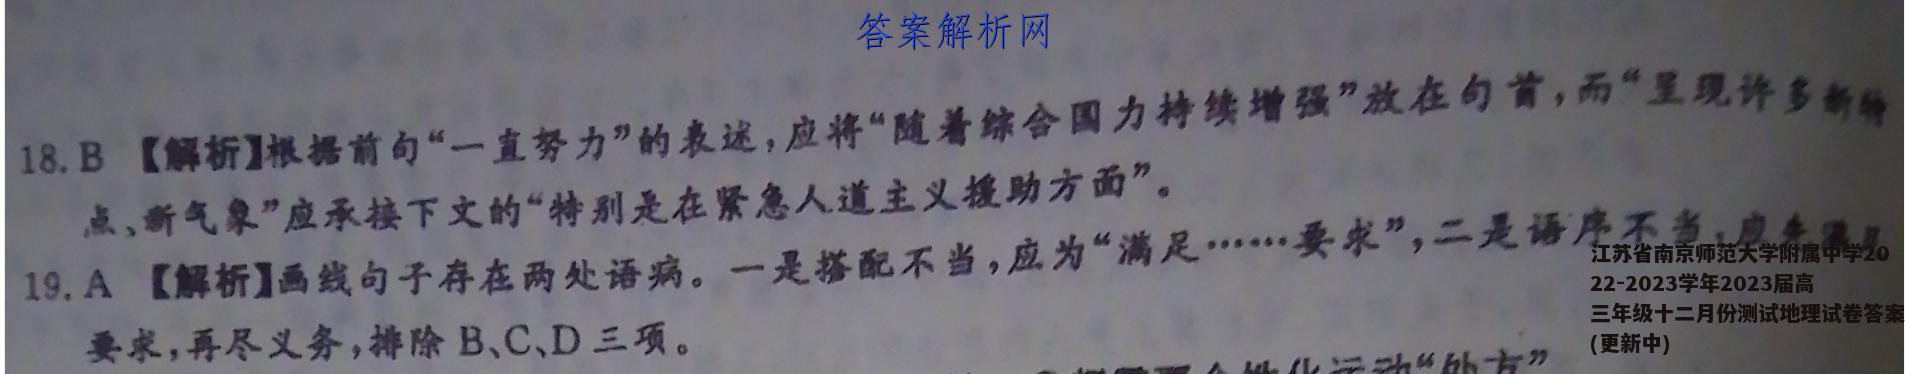 答案解析网
18. B 【解析】根据前句“一直努力”的表述,应将“随着综合国力持续增强”放在句首,而“呈现许多新特
点、新气象”应承接下文的“特别是在紧急人道主义援助方面”。
19. A 【解析】画线句子存在两处语病。一是搭配不当,应为“满足……要求”,二是语序不当,应先满足
要求,再尽义务,排除 B、C、D 三项。
江苏省南京师范大学附属中学20
22-2023学年2023届高
三年级十二月份测试地理试卷答案
(更新中)
个性化运动“处方”